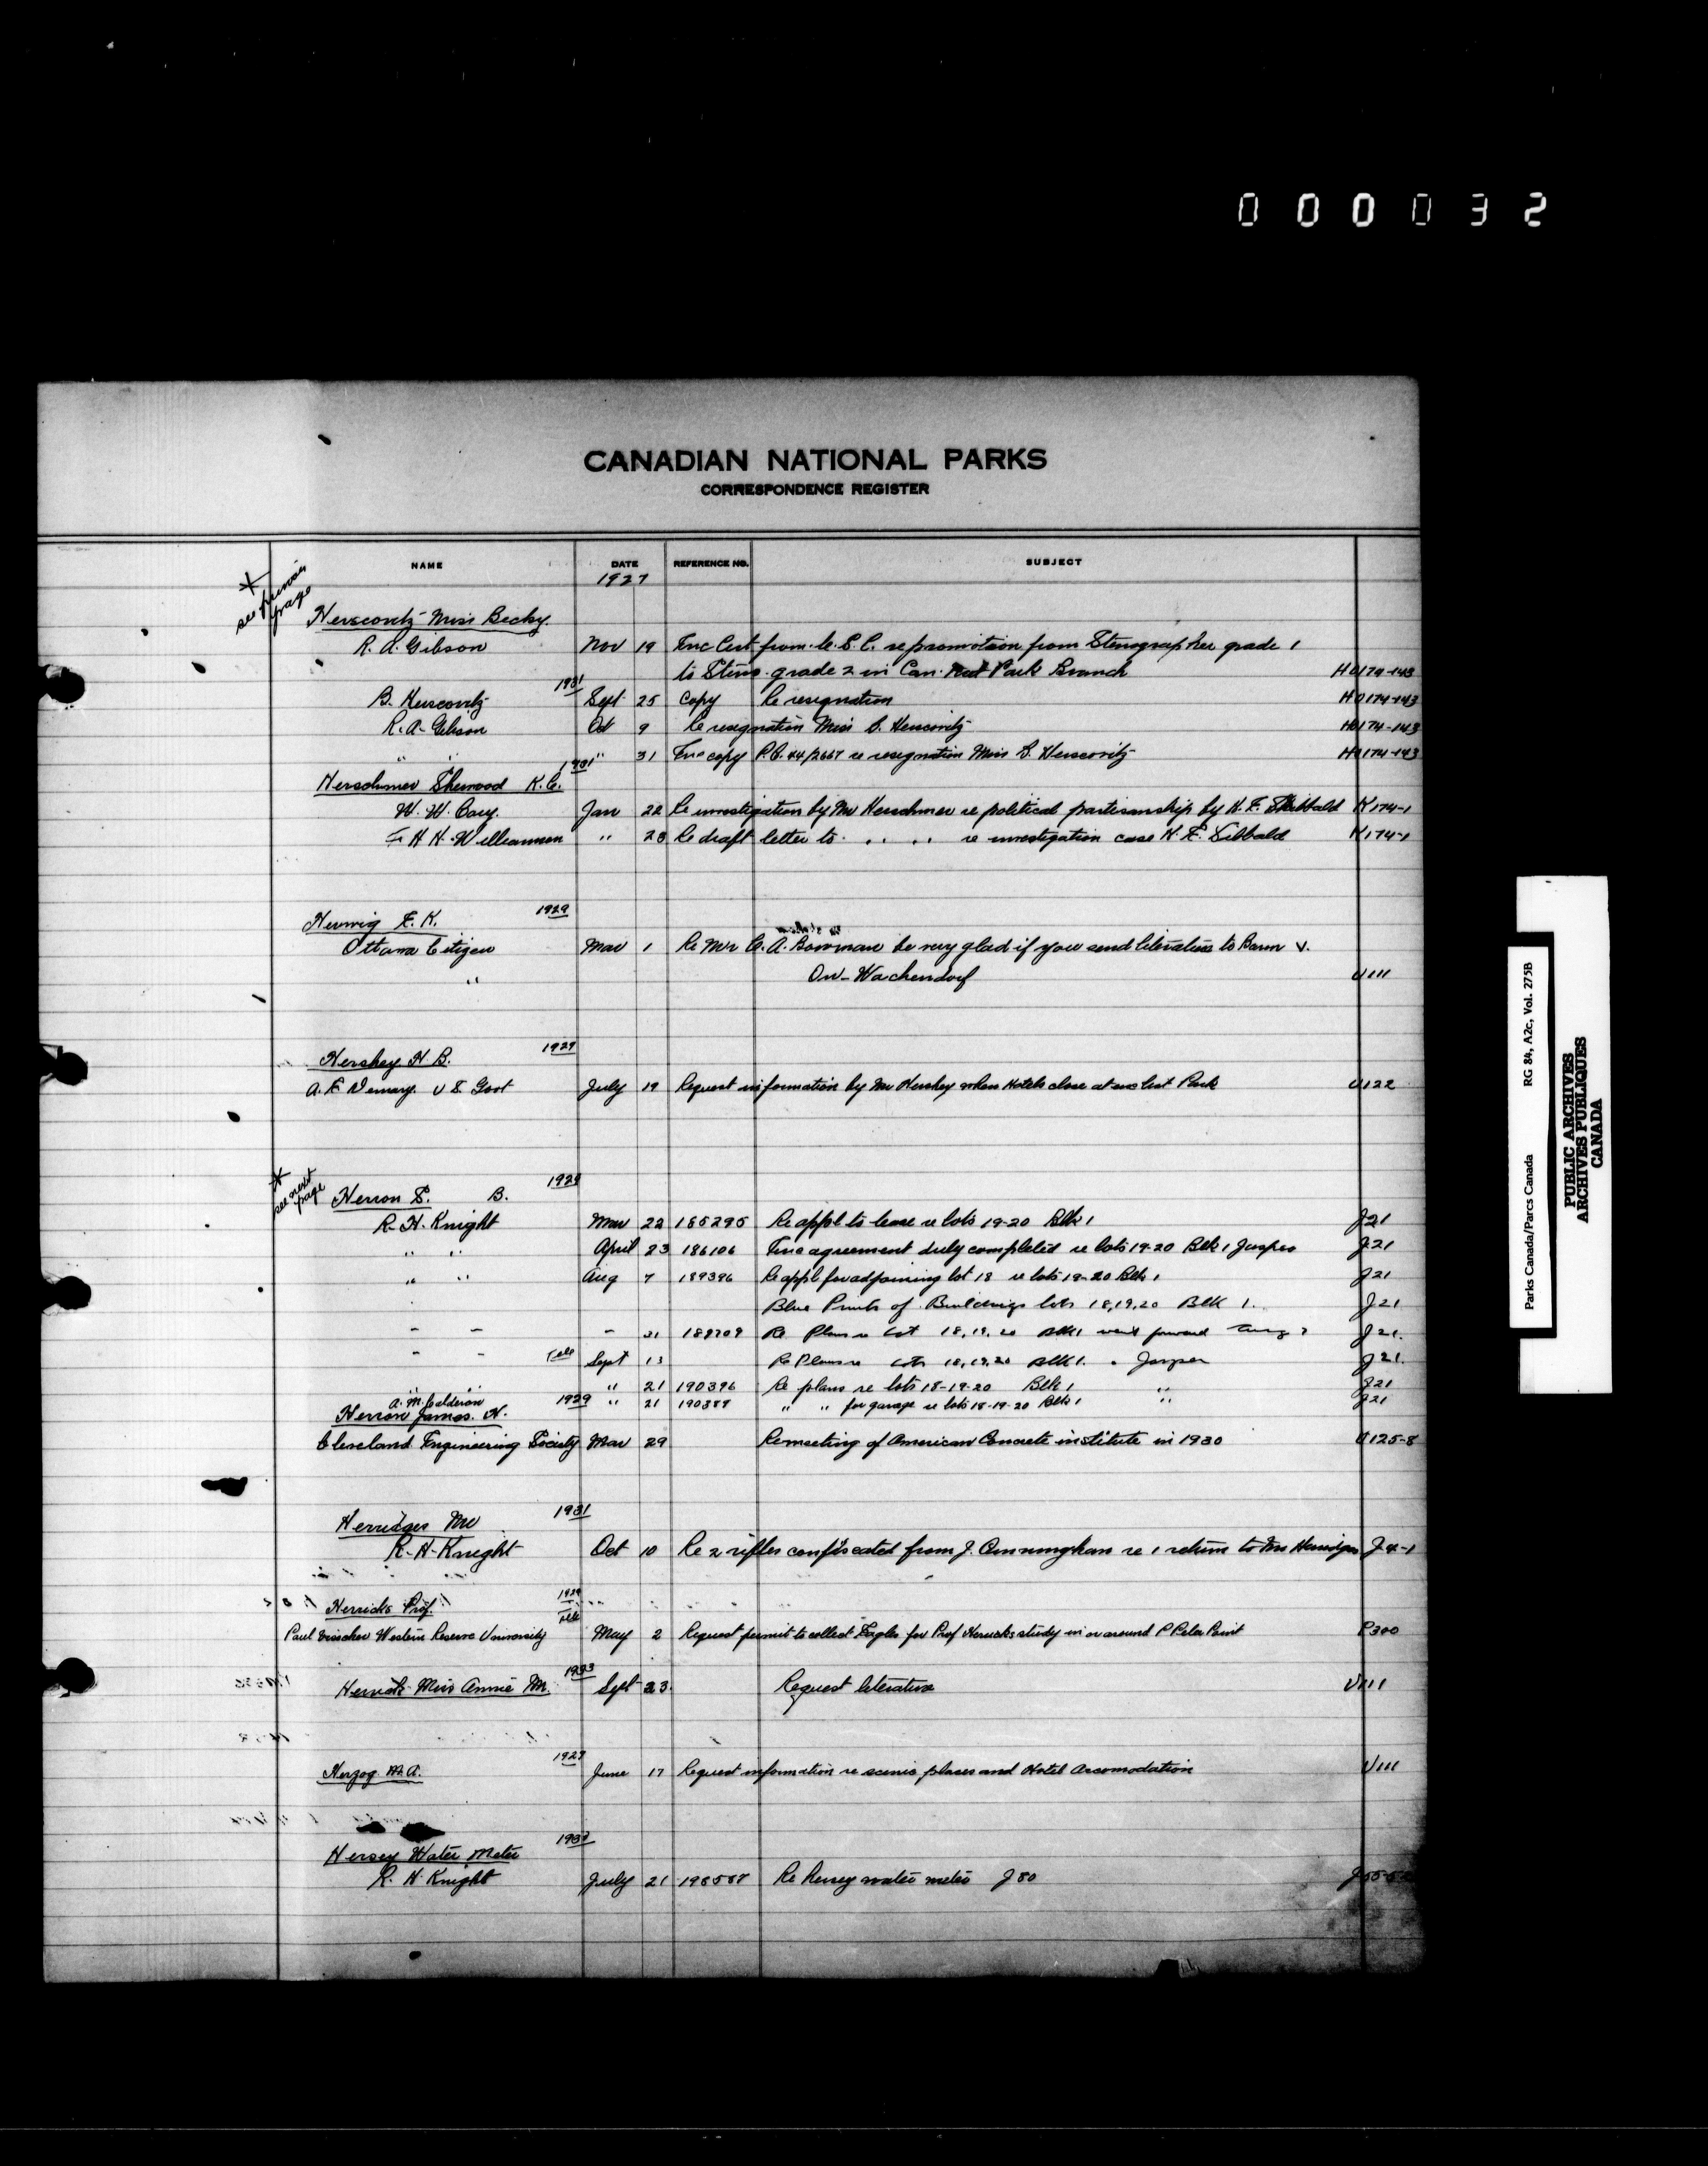 0 0 0 0 3 2
CANADIAN NATIONAL PARKS
CORRESPONDENCE REGISTER
NAME DATE REFERENCE NO. SUBJECT
1927
* see previous page
Herscovitz Miss Becky.
R. A. Gibson Nov 19 Enc Cert from C.S.C. re promotion from Stenographer grade 1
to Steno. grade 2 in Can. Nat Park Branch HO174-143
1931
B. Herscovitz Sept 25 copy Re resignation HO174-143
R. A. Gibson Oct 9 Re resignation Miss B. Herscovitz HO174-143
" " " 31 Enc copy P.C. 44/2667 re resignation Miss B. Herscovitz HO174-143
Herschmer Sherwood K.C. 1931
W. W. Cory. Jan 22 Re investigation by Mr Herschmer re political partisanship by H. E. Sibbald K174-1
F H H Williamson " 28 Re draft letter to " " re investigation case H. E. Sibbald K174-1
Herwig F. K. 1929
Ottawa Citizen Mar 1 Re Mr C. A. Bowman be very glad if you send literature to Baron V.
" Ow-Wachendorf U111
Hershey H B. 1929
A. E Demary. U S. Govt July 19 Request information by Mr Hershey when Hotels close at Park U122
* see next page
Herron S. B. 1929
R. H. Knight Mar 22 185295 Re appl to lease re lots 19-20 Blk 1 J21
" " April 23 186106 Enc agreement duly completed re lots 19-20 Blk 1 Jasper J21
" " Aug 7 189396 Re appl for adjoining lot 18 re lots 19-20 Blk 1 J21
Blue Prints of Buildings lots 18,19,20 Blk 1. J21
" " " 21 189709 Re Plans re Lot 18,19,20 Blk 1 went forward Aug 7 J21.
" " Tele Sept 13 Re Plans re Lots 18,19,20 Blk 1. " Jasper J21.
" " " 21 190396 Re plans re lots 18-19-20 Blk 1 " J21
A. M. Calderon 1929 " 21 190387 " " for garage re lots 18-19-20 Blk 1 " J21
Herron James. H.
Cleveland Engineering Society Mar 29 Re meeting of American Concrete institute in 1930 U125-8
Herridges Mr 1931
R. H. Knight Oct 10 Re 2 rifles confiscated from J. Cunningham re 1 return to Mr Herridges J4-1
Herricks Prof. 1929
Tele
Paul Visscher Western Reserve University May 2 Request permit to collect Eagles for Prof Herricks study in or around P Pelee Point P300
Herrick Miss Annie M. 1933 Sept 23. Request literature U111
Herzog. M. A. 1929 June 17 Request information re scenic places and Hotel accomodation U111
Hersey Water Meter
R. H. Knight July 21 198587 Re Hersey water meter J80
Parks Canada/Parcs Canada RG 84, A2c, Vol. 275B
PUBLIC ARCHIVES
ARCHIVES PUBLIQUES
CANADA